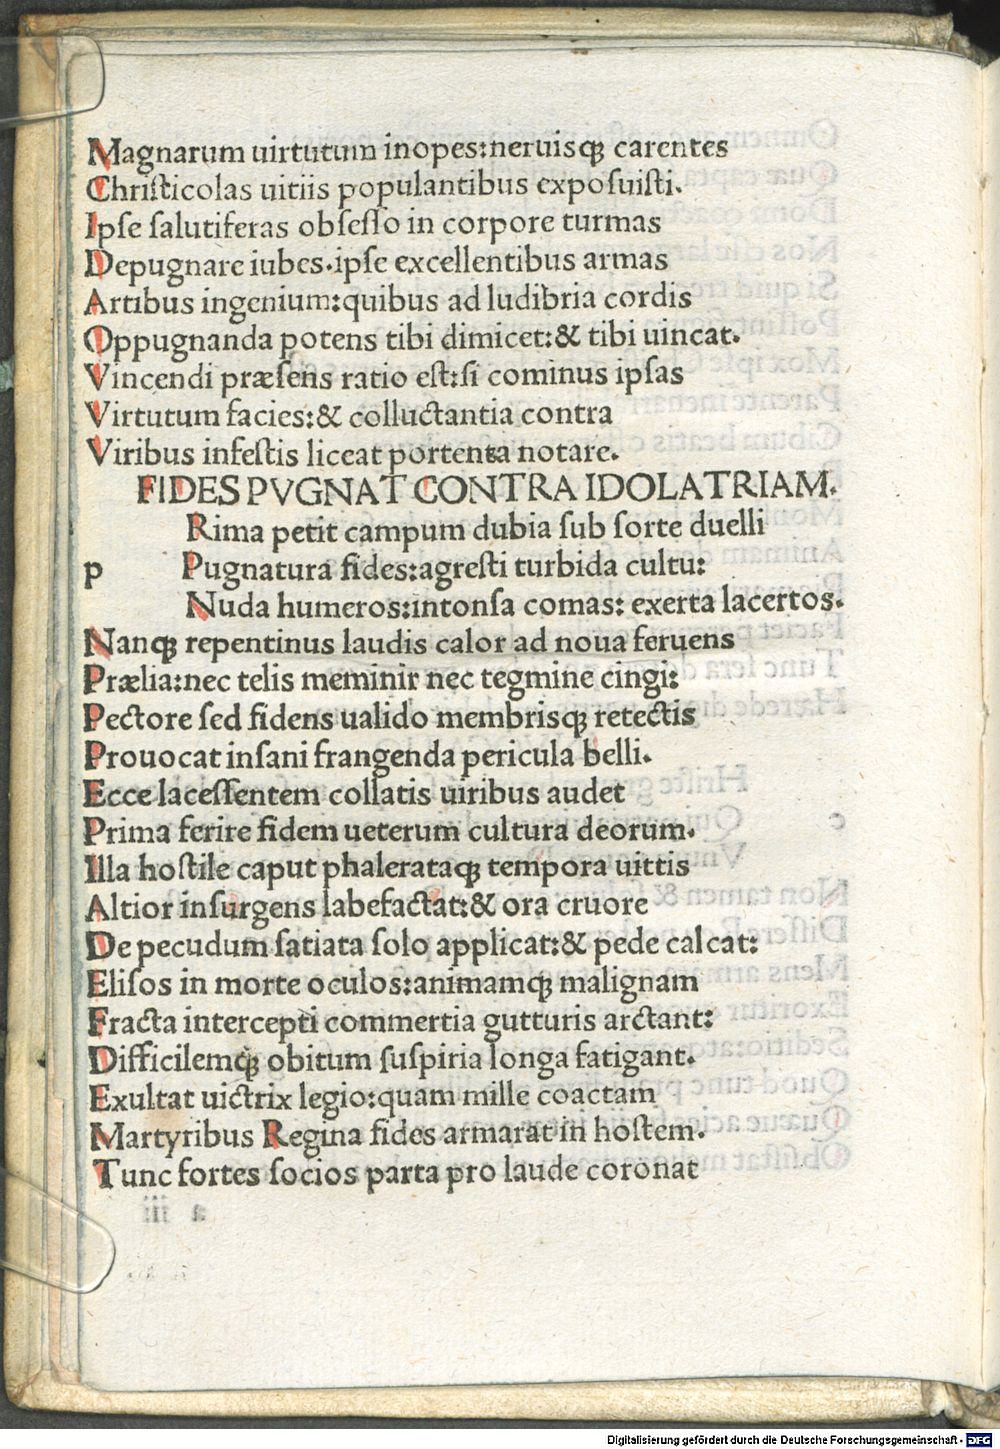 Magnarum uirtutum inopes:neruisqꝫ carentes
Chriſticolas uitiis populantibus expoſuiſti.
Ipſe ſalutiferas obſeſſo in corpore turmas
Depugnare iubes.ipſe excellentibus armas
Artibus ingenium:quibus ad ludibria cordis
Oppugnanda potens tibi dimicet:& tibi uincat.
Vincendi præſens ratio eſt:ſi cominus ipſas
Virtutum facies:& colluctantia contra
Viribus infeſtis liceat portenta notare.
FIDES PVGNAT CONTRA IDOLATRIAM.
Rima petit campum dubia ſub ſorte duelli
p Pugnatura fides:agreſti turbida cultu:
Nuda humeros:intonſa comas: exerta lacertos.
Nanqꝫ repentinus laudis calor ad noua feruens
Prælia:nec telis meminir nec tegmine cingi:
Pectore ſed fidens ualido membrisqꝫ retectis
Prouocat inſani frangenda pericula belli.
Ecce laceſſentem collatis uiribus audet
Prima ferire fidem ueterum cultura deorum.
Illa hoſtile caput phalerataqꝫ tempora uittis
Altior inſurgens labefactat:& ora cruore
De pecudum ſatiata ſolo applicat:& pede calcat:
Eliſos in morte oculos:animamqꝫ malignam
Fracta intercepti commertia gutturis arctant:
Difficilemqꝫ obitum ſuſpiria longa fatigant.
Exultat uictrix legio:quam mille coactam
Martyribus Regina fides armarat in hoſtem.
Tunc fortes ſocios parta pro laude coronat
Digitalisierung gefördert durch die Deutsche Forschungsgemeinschaft - DFG